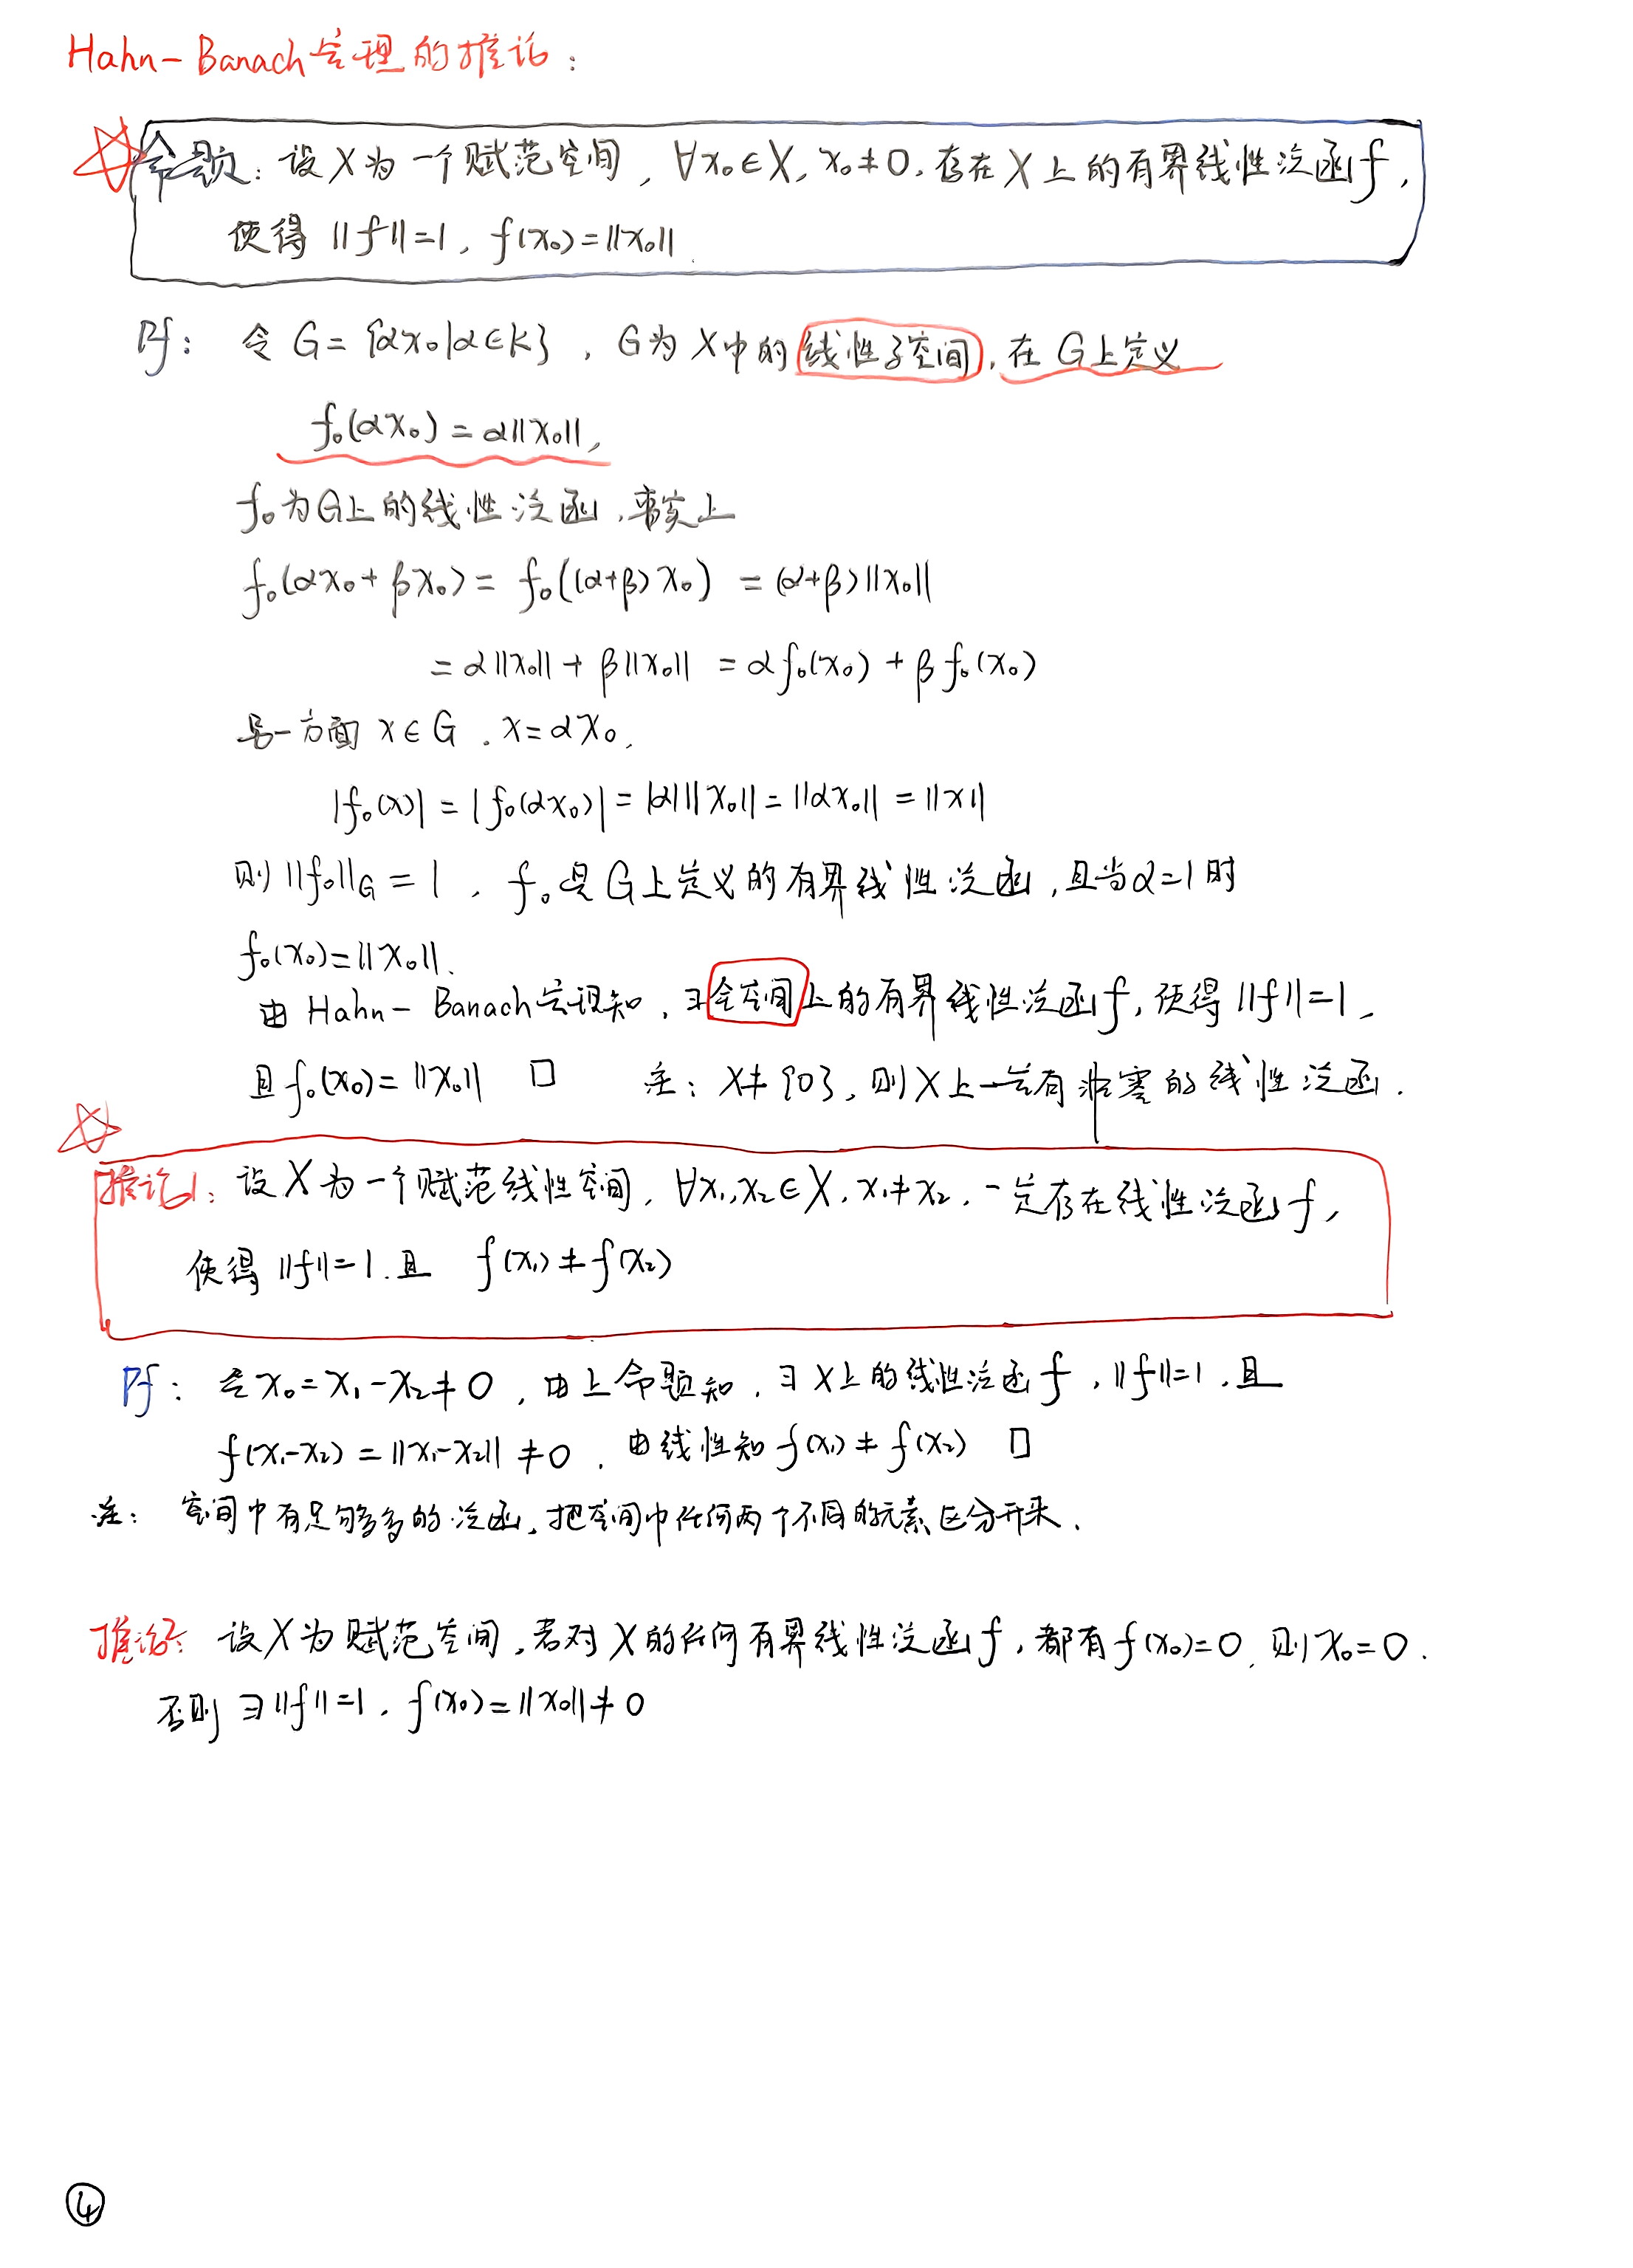 Hahn-Banach定理的推论:
命题: 设X为一个赋范空间, ∀x₀∈X, x₀≠0, 存在X上的有界线性泛函f,
使得 ||f||=1, f(x₀)=||x₀||.
Pf: 令 G={αx₀|α∈K}, G为X中的线性子空间, 在G上定义
f₀(αx₀)=α||x₀||,
f₀为G上的线性泛函, 事实上
f₀(αx₀+βx₀)= f₀((α+β)x₀) =(α+β)||x₀||
=α||x₀||+β||x₀|| =αf₀(x₀)+βf₀(x₀)
另一方面 x∈G. x=αx₀,
|f₀(x)|=|f₀(αx₀)|=|α|||x₀||=||αx₀||=||x||
则||f₀||_G=1, f₀是G上定义的有界线性泛函, 且当α=1时
f₀(x₀)=||x₀||.
由Hahn-Banach定理知, ∃全空间上的有界线性泛函f, 使得||f||=1,
且f₀(x₀)=||x₀|| □ 注: X≠{0}, 则X上一定有非零的线性泛函.
推论1: 设X为一个赋范线性空间, ∀x₁,x₂∈X, x₁≠x₂, 一定存在线性泛函f,
使得 ||f||=1.且 f(x₁)≠f(x₂)
Pf: 令x₀=x₁-x₂≠0, 由上命题知, ∃X上的线性泛函f, ||f||=1, 且
f(x₁-x₂)=||x₁-x₂||≠0. 由线性知f(x₁)≠f(x₂) □
注: 空间中有足够多的泛函, 把空间中任何两个不同的元素区分开来.
推论2: 设X为赋范空间, 若对X的任何有界线性泛函f, 都有f(x₀)=0, 则x₀=0.
否则∃||f||=1, f(x₀)=||x₀||≠0
④